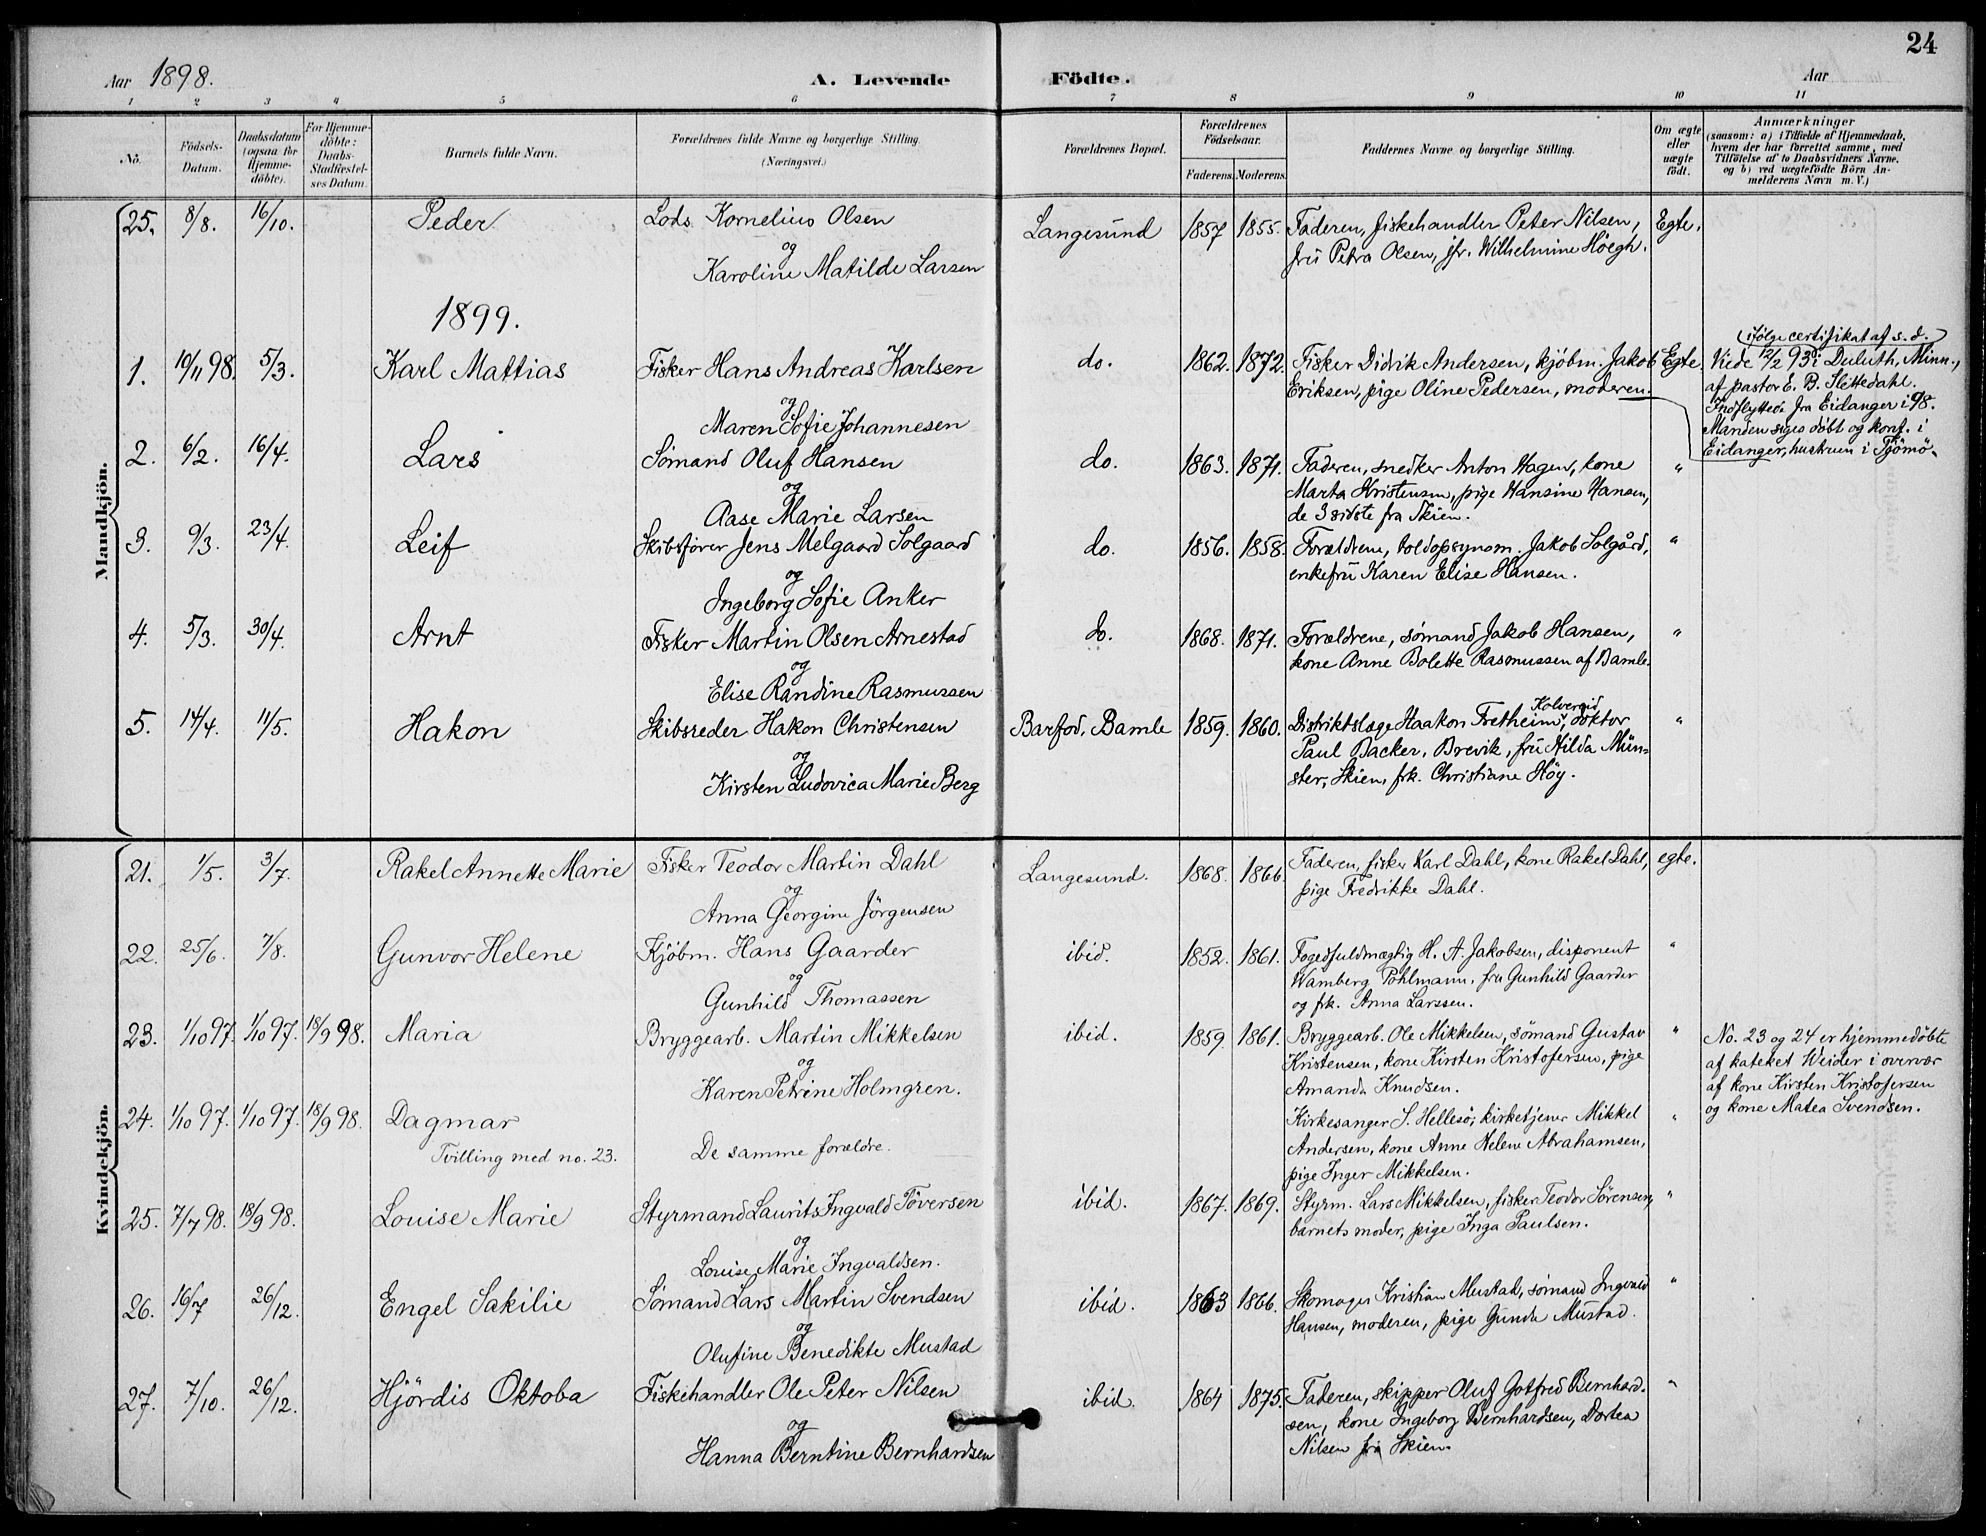 24
Aar 1898. A. Levende Födte. Aar
1 2 3 4 5 6 7 8 9 10 11
No. Födsels-Datum. Daabsdatum (ogsaa for Hjemme-döbte). For Hjemme-döbte: Daabs-Stadfæstel-ses Datum. Barnets fulde Navn. Forældrenes fulde Navne og borgerlige Stilling. (Næringsvei.) Forældrenes Bopæl. Forældrenes Födselsaar. Faderens. Moderens. Faddernes Navne og borgerlige Stilling. Om ægte eller uægte födt. Anmærkninger
(saasom: a) i Tilfælde af Hjemmedaab, hvem der har forrettet samme, med Tilföielse af to Daabsvidners Navne, og b) ved uægtefödte Börn An-melderens Navn m. V.)
Mandkjön.
25. 8/8. 16/10. Peder Lods Kornelius Olsen Langesund 1857 1855. Faderen, fiskehandler Peter Nilsen, Egte.
og fru Petra Olsen, jfr. Wilhelmine Höegh.
Karoline Matilde Larsen
1899.
ifölge certifikat af s. d.
1. 10/11 98. 5/3. Karl Mattias Fisker Hans Andreas Karlsen do. 1862. 1872. Fisker Didrik Andersen, kjöbm. Jakob Egte. Viede 12/2 93 i Duluth, Minn.,
og Eriksen, pige Oline Pedersen, moderen. af pastor E. B. Slettedahl.
Maren Sofie Johannesen Indflyttede fra Eidanger i 98.
Manden siges döbt og konf. i
Eidanger, hustruen i Tjömö.
2. 6/2. 16/4. Lars Sömand Oluf Hansen do. 1863. 1871. Faderen, snedker Anton Hagen, kone "
og Marta Kristensen, pige Hansine Hansen,
Aase Marie Larsen de 3 sidste fra Skien.
3. 9/3. 23/4. Leif Skibsförer Jens Melgaard Solgaard do. 1856. 1858. Forældrene, toldopsynsm. Jakob Solgård, "
og enkefru Karen Elise Hansen.
Ingeborg Sofie Anker
4. 5/3. 30/4. Arnt Fisker Martin Olsen Arnestad do. 1868. 1871. Forældrene, sömand Jakob Hansen, "
og kone Anne Bolette Rasmussen af Bamle.
Elise Randine Rasmussen
5. 14/4. 11/5. Hakon Skibsreder Hakon Christensen Barfod, Bamle 1859. 1860. Distriktslæge Haakon Fretheim, doktor "
og Paul Backer, Brevik, fru Hilda Mün-
Kirsten Ludovica Marie Berg ster, Skien, frk. Christiane Höy.
Kvindekjön.
21. 1/5. 3/7. Rakel Annette Marie Fisker Teodor Martin Dahl Langesund. 1868. 1866. Faderen, fisker Karl Dahl, kone Rakel Dahl, egte.
og pige Fredrikke Dahl.
Anna Georgine Jörgensen
22. 25/6. 7/8. Gunvor Helene Kjöbm. Hans Gaarder ibid. 1852. 1861. Fogedfuldmægtig H. A. Jakobsen, disponent "
og Wamberg Pohlmann, fru Gunhild Gaarder
Gunhild Thomassen og frk. Anna Larssen.
23. 1/10 97. 1/10 97. 18/9 98. Maria Bryggearb. Martin Mikkelsen ibid. 1859. 1861. Bryggearb. Ole Mikkelsen, sömand Gustav " No. 23 og 24 er hjemmedöbte
og Kristensen, kone Kirsten Kristofersen, pige af kateket Weider i overvær
Karen Petrine Holmgren. Amanda Knudsen. af kone Kirsten Kristofersen
og kone Matea Svendsen.
24. 1/10 97. 1/10 97. 18/9 98. Dagmar De samme forældre. Kirkesanger S. Hellesö, kirketjener Mikkel "
Tvilling med no. 23. Andersen, kone Anne Helene Abrahamsen,
pige Inger Mikkelsen.
25. 7/7 98. 18/9 98. Louise Marie Styrmand Laurits Ingvald Töversen ibid. 1867. 1869. Styrm. Lars Mikkelsen, fisker Teodor Sörensen, "
og barnets moder, pige Inga Paulsen.
Louise Marie Ingvaldsen.
26. 16/7 26/12. Engel Sakilie Sömand Lars Martin Svendsen ibid. 1863 1866. Skomager Kristian Mustad, sömand Ingvald "
og Hansen, moderen, pige Gunda Mustad.
Olufine Benedikte Mustad
27. 7/10. 26/12. Hjördis Oktoba Fiskehandler Ole Peter Nilsen ibid. 1864 1875. Faderen, skipper Oluf Gotfred Bernhard- "
og sen, kone Ingeborg Bernhardsen, Dortea
Hanna Berntine Bernhardsen Nilsen fra Skien.